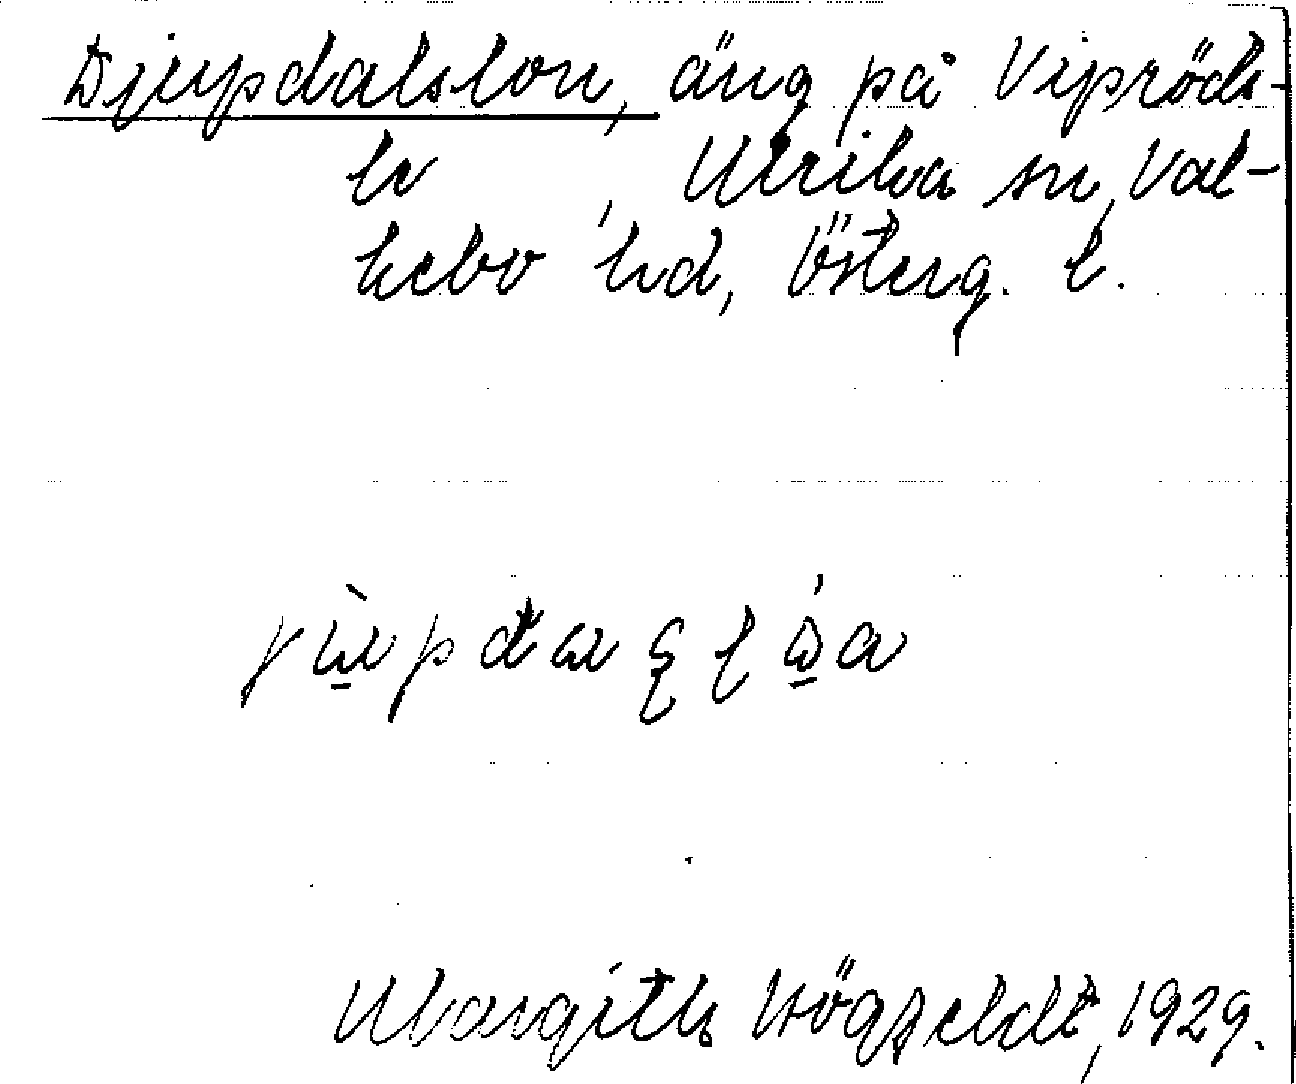 Djupdalslon, äng på Vipröds-
le , Ulrika sn, Val-
kebo hd, Österg. l.
Margith Högfeldt, 1929.